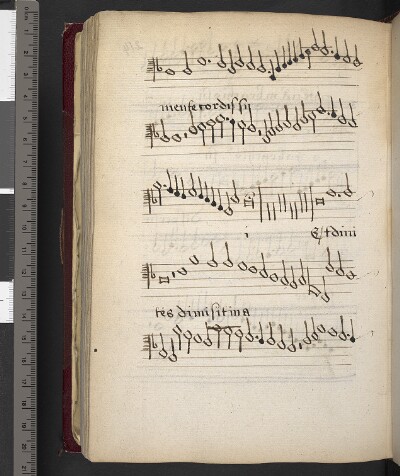 mense tordissi
i Et dimi
tes dimisit ina